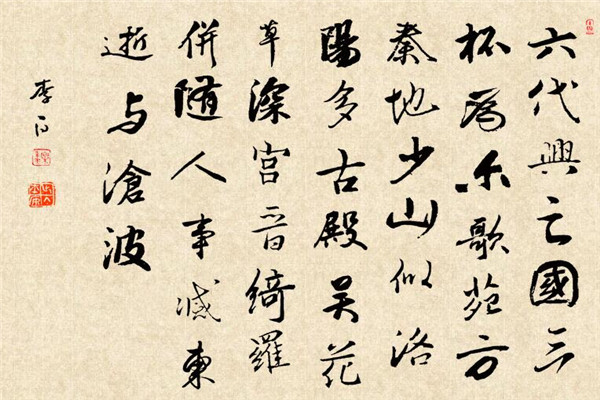 六代興亡國三
杯為尔歌苑方
秦地少山似洛
陽多古殿吴花
草深宫晋綺羅
併随人事滅東
逝与滄波
李白